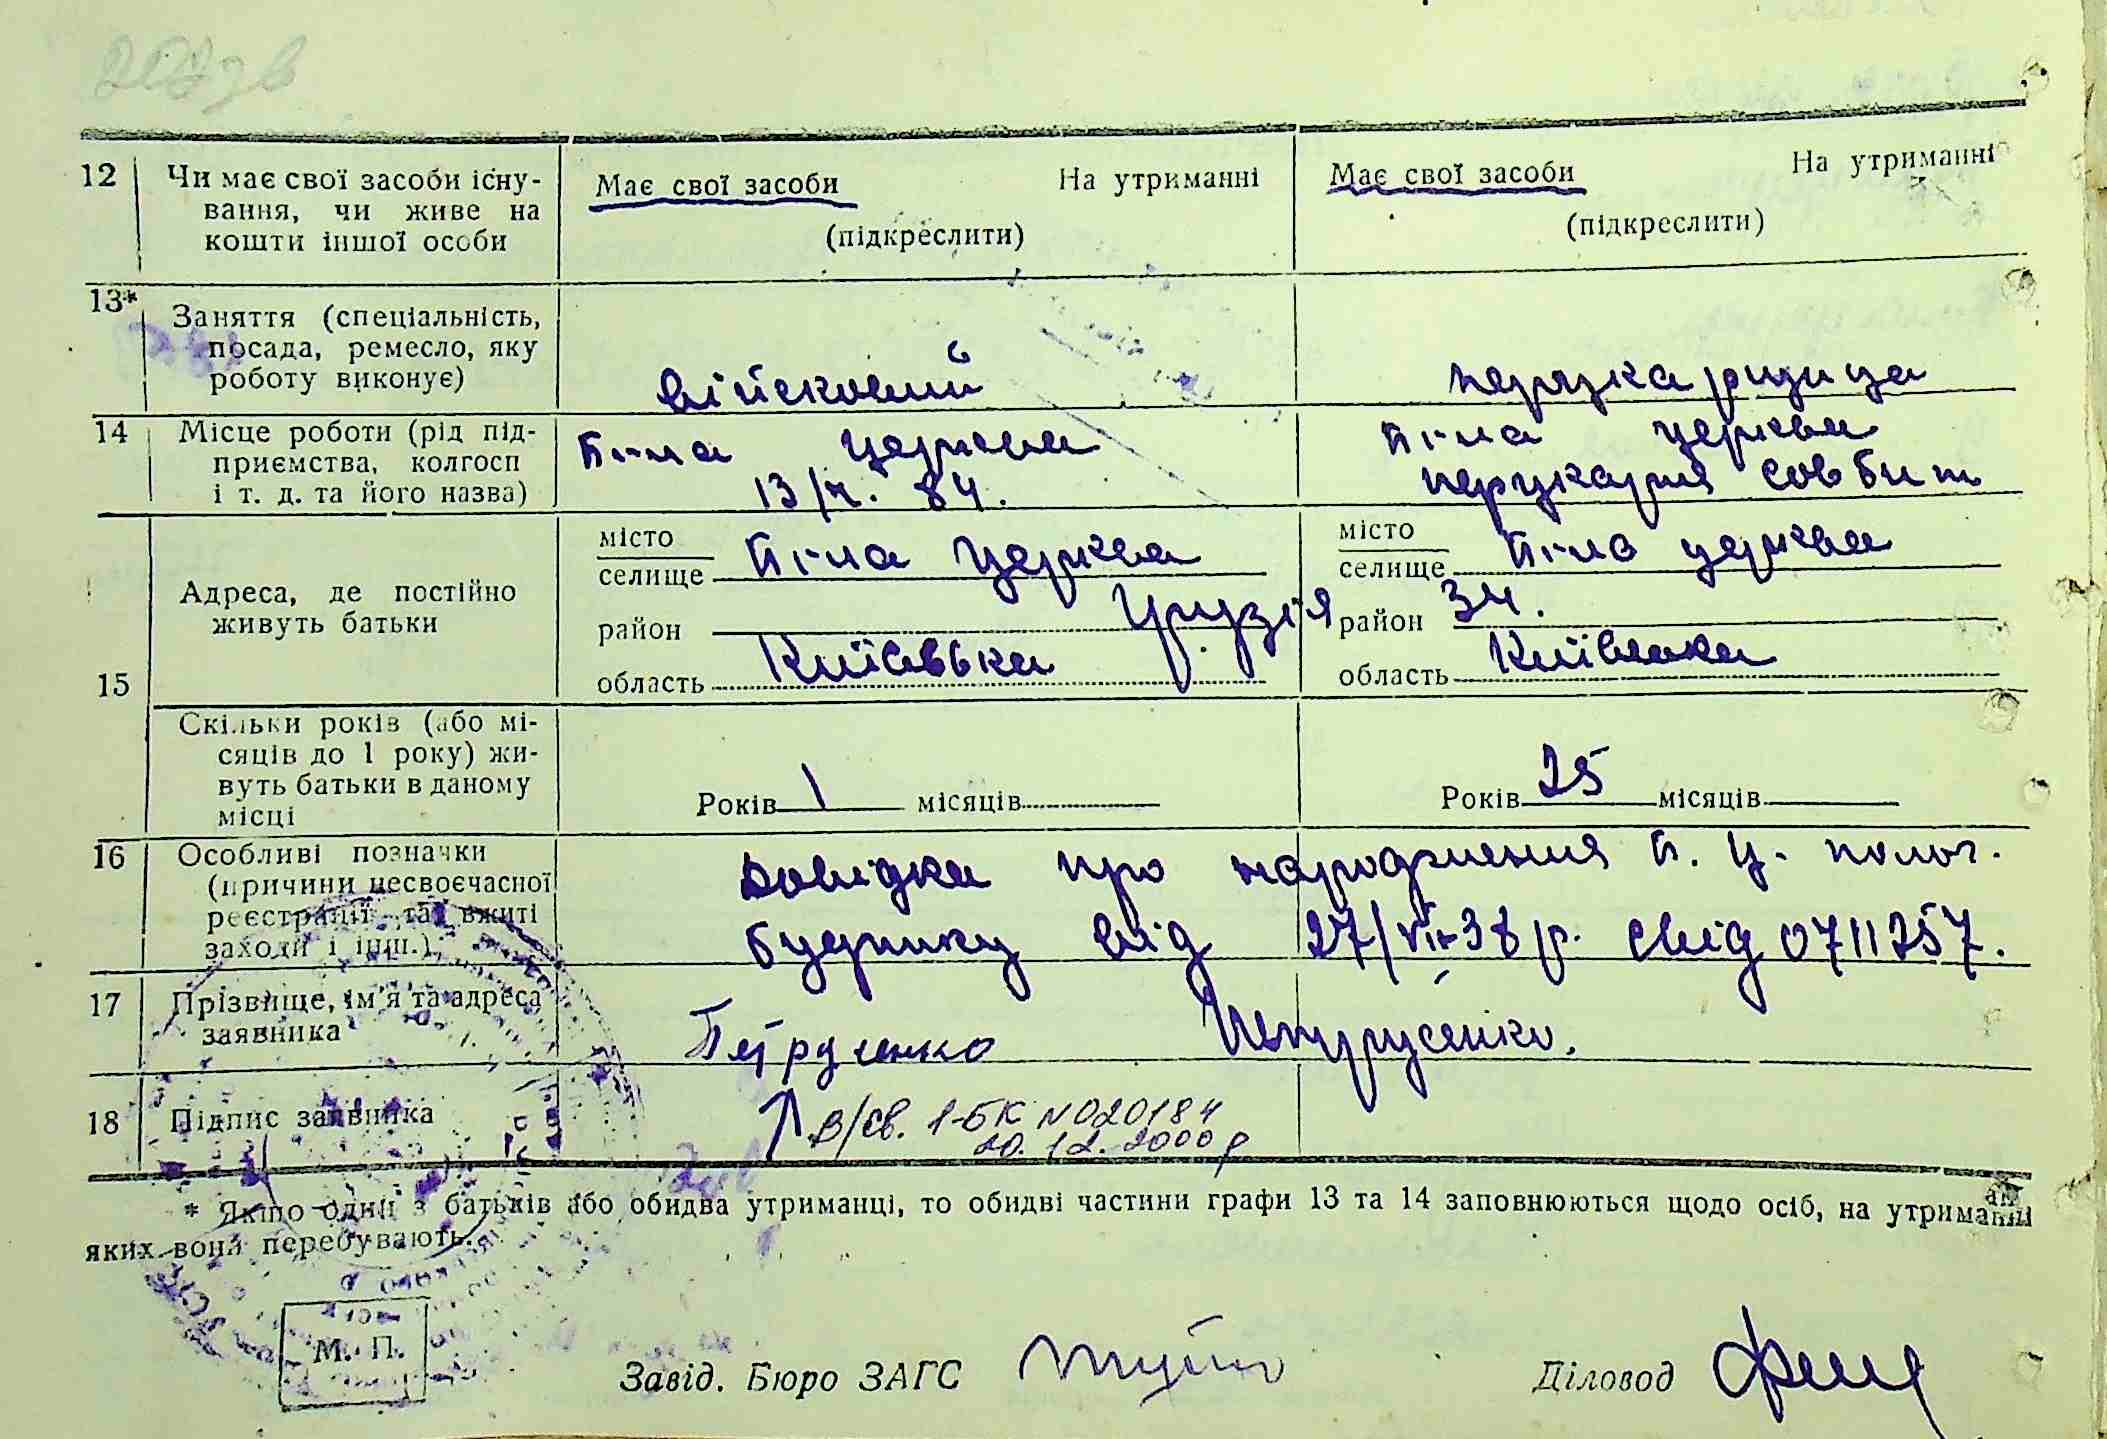 12 Чи має свої засоби існу-
вання, чи живе на
кошти іншої особи
Має свої засоби На утриманні
(підкреслити)
Має свої засоби На утриманні
(підкреслити)
13* Заняття (спеціальність,
посада, ремесло, яку
роботу виконує)
військовий
перукариця
14 Місце роботи (рід під-
приємства, колгосп
і т. д. та його назва)
Біла церква
13/ 84.
Біла церква
перукарня совбит
15 Адреса, де постійно
живуть батьки
місто
селище Біла Церква
район Грузія
область Київська
місто
селище Біла церква
район 34.
область Київська
Скільки років (або мі-
сяців до 1 року) жи-
вуть батьки в даному
місці
Років 1 місяців
Років 25 місяців
16 Особливі позначки
(причини несвоєчасної
реєстрації та вжиті
заходи і інш.)
Довідка про народження Б. Ц. полог.
будинку від 27/VI-38 р. свід 0711257.
17 Прізвище, ім'я та адреса
заявника
Петрусенко
18 Підпис заявника
В/св. 1-БК N 020184
20.12.2000 р
* Якщо один з батьків або обидва утриманці, то обидві частини графи 13 та 14 заповнюються щодо осіб, на утриманні
яких вони перебувають.
М. П.
Завід. Бюро ЗАГС
Діловод